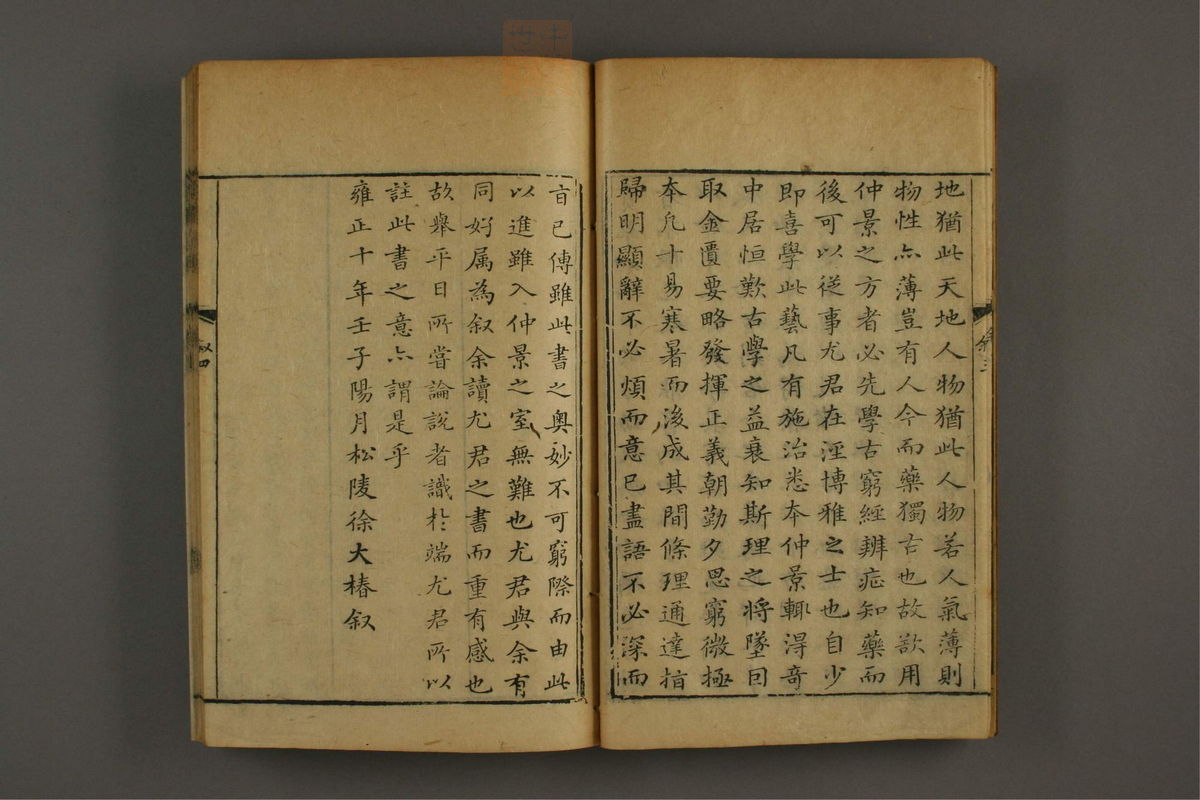 地猶此天地人物猶此人物若人氣薄則
物性亦薄豈有人今而藥獨古也故欲用
仲景之方者必先學古窮經辨症知藥而
後可以從事尤君在涇博雅之士也自少
即喜學此藝凡有施治悉本仲景輒得奇
中居恒歎古學之益衰知斯理之將墜因
取金匱要略發揮正義朝勤夕思窮微極
本凡十易寒暑而後成其間條理通達指
歸明顯辭不必煩而意已盡語不必深而
旨已傳雖此書之奧妙不可窮際而由此
以進雖入仲景之室無難也尤君與余有
同好属為叙余讀尤君之書而重有感也
故舉平日所嘗論說者識於端尤君所以
註此書之意亦謂是乎
雍正十年壬子陽月松陵徐大椿叙
叙四